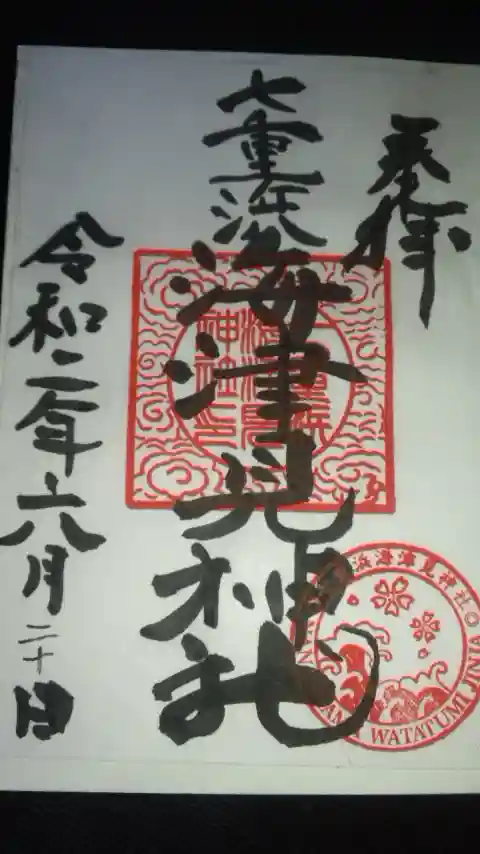 奉拝
七重浜
海津見神社
令和二年六月二十日
七重浜
海津見
神社之印
浜海津見神社
WATATUMI JINJYA